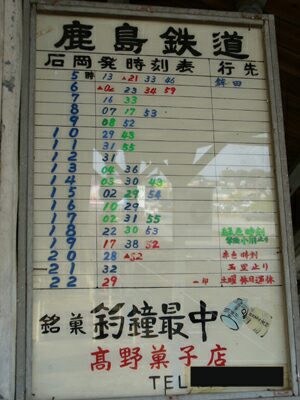 鹿島鉄道
石岡発時刻表 行先
5時 13 ▲21 33 46 鉾田
6 ▲02 23 34 59
7 16 33
8 07 17 53
9 08 52
10 29 43
11 31 55
12 31
13 04 36
14 03 30 43
15 02 29 54
16 10 29
17 02 31 55
18 22 30 53 緑色時刻
19 17 38 52 常陸小川止り
20 28 ▲52 赤色時刻
21 32 玉里止り
22 29 土曜休日運休
銘菓 釣鐘最中
髙野菓子店
TEL